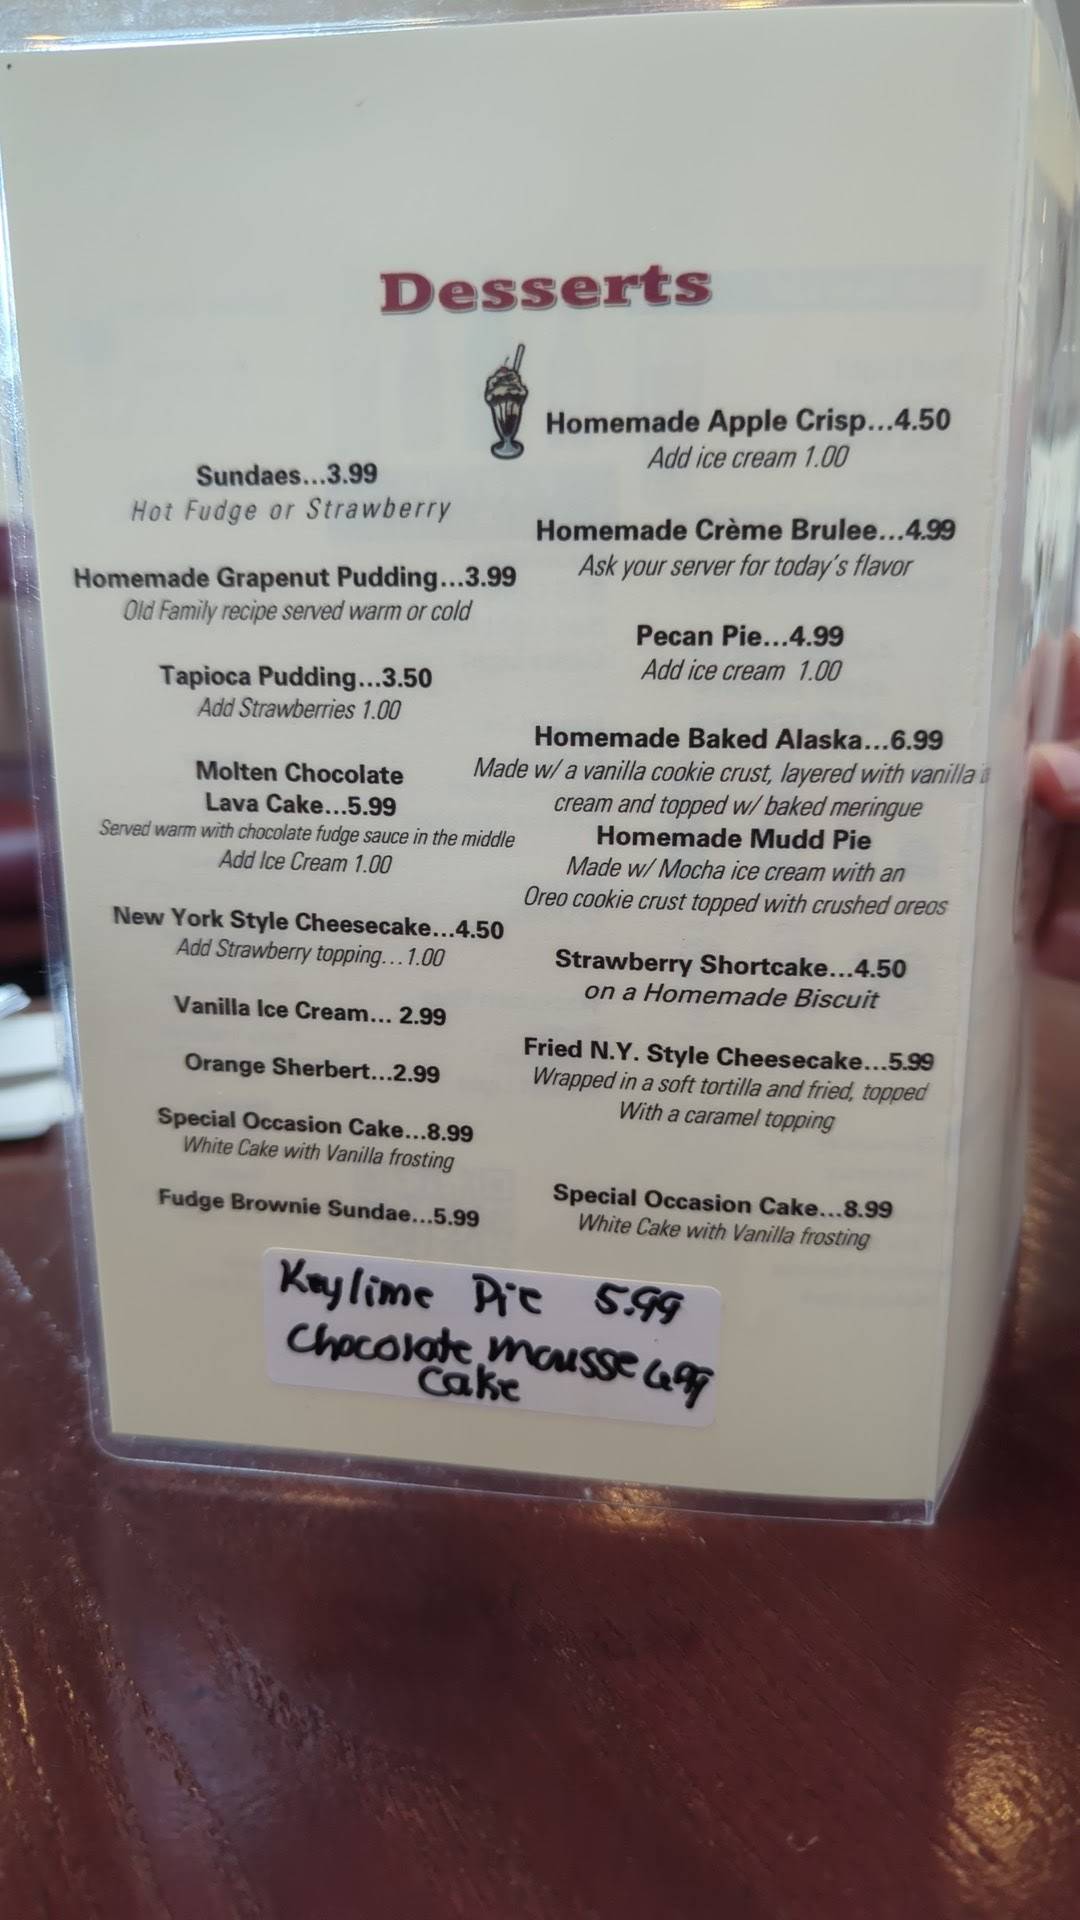 Desserts
Sundaes...3.99
Hot Fudge or Strawberry
Homemade Grapenut Pudding...3.99
Old Family recipe served warm or cold
Tapioca Pudding...3.50
Add Strawberries 1.00
Molten Chocolate
Lava Cake...5.99
Served warm with chocolate fudge sauce in the middle
Add Ice Cream 1.00
New York Style Cheesecake...4.50
Add Strawberry topping...1.00
Vanilla Ice Cream... 2.99
Orange Sherbert...2.99
Special Occasion Cake...8.99
White Cake with Vanilla frosting
Fudge Brownie Sundae...5.99
Homemade Apple Crisp...4.50
Add ice cream 1.00
Homemade Crème Brulee...4.99
Ask your server for today's flavor
Pecan Pie...4.99
Add ice cream 1.00
Homemade Baked Alaska...6.99
Made w/ a vanilla cookie crust, layered with vanilla
cream and topped w/ baked meringue
Homemade Mudd Pie
Made w/ Mocha ice cream with an
Oreo cookie crust topped with crushed oreos
Strawberry Shortcake...4.50
on a Homemade Biscuit
Fried N.Y. Style Cheesecake...5.99
Wrapped in a soft tortilla and fried, topped
With a caramel topping
Special Occasion Cake...8.99
White Cake with Vanilla frosting
Keylime Pie 5.99
Chocolate mousse
Cake